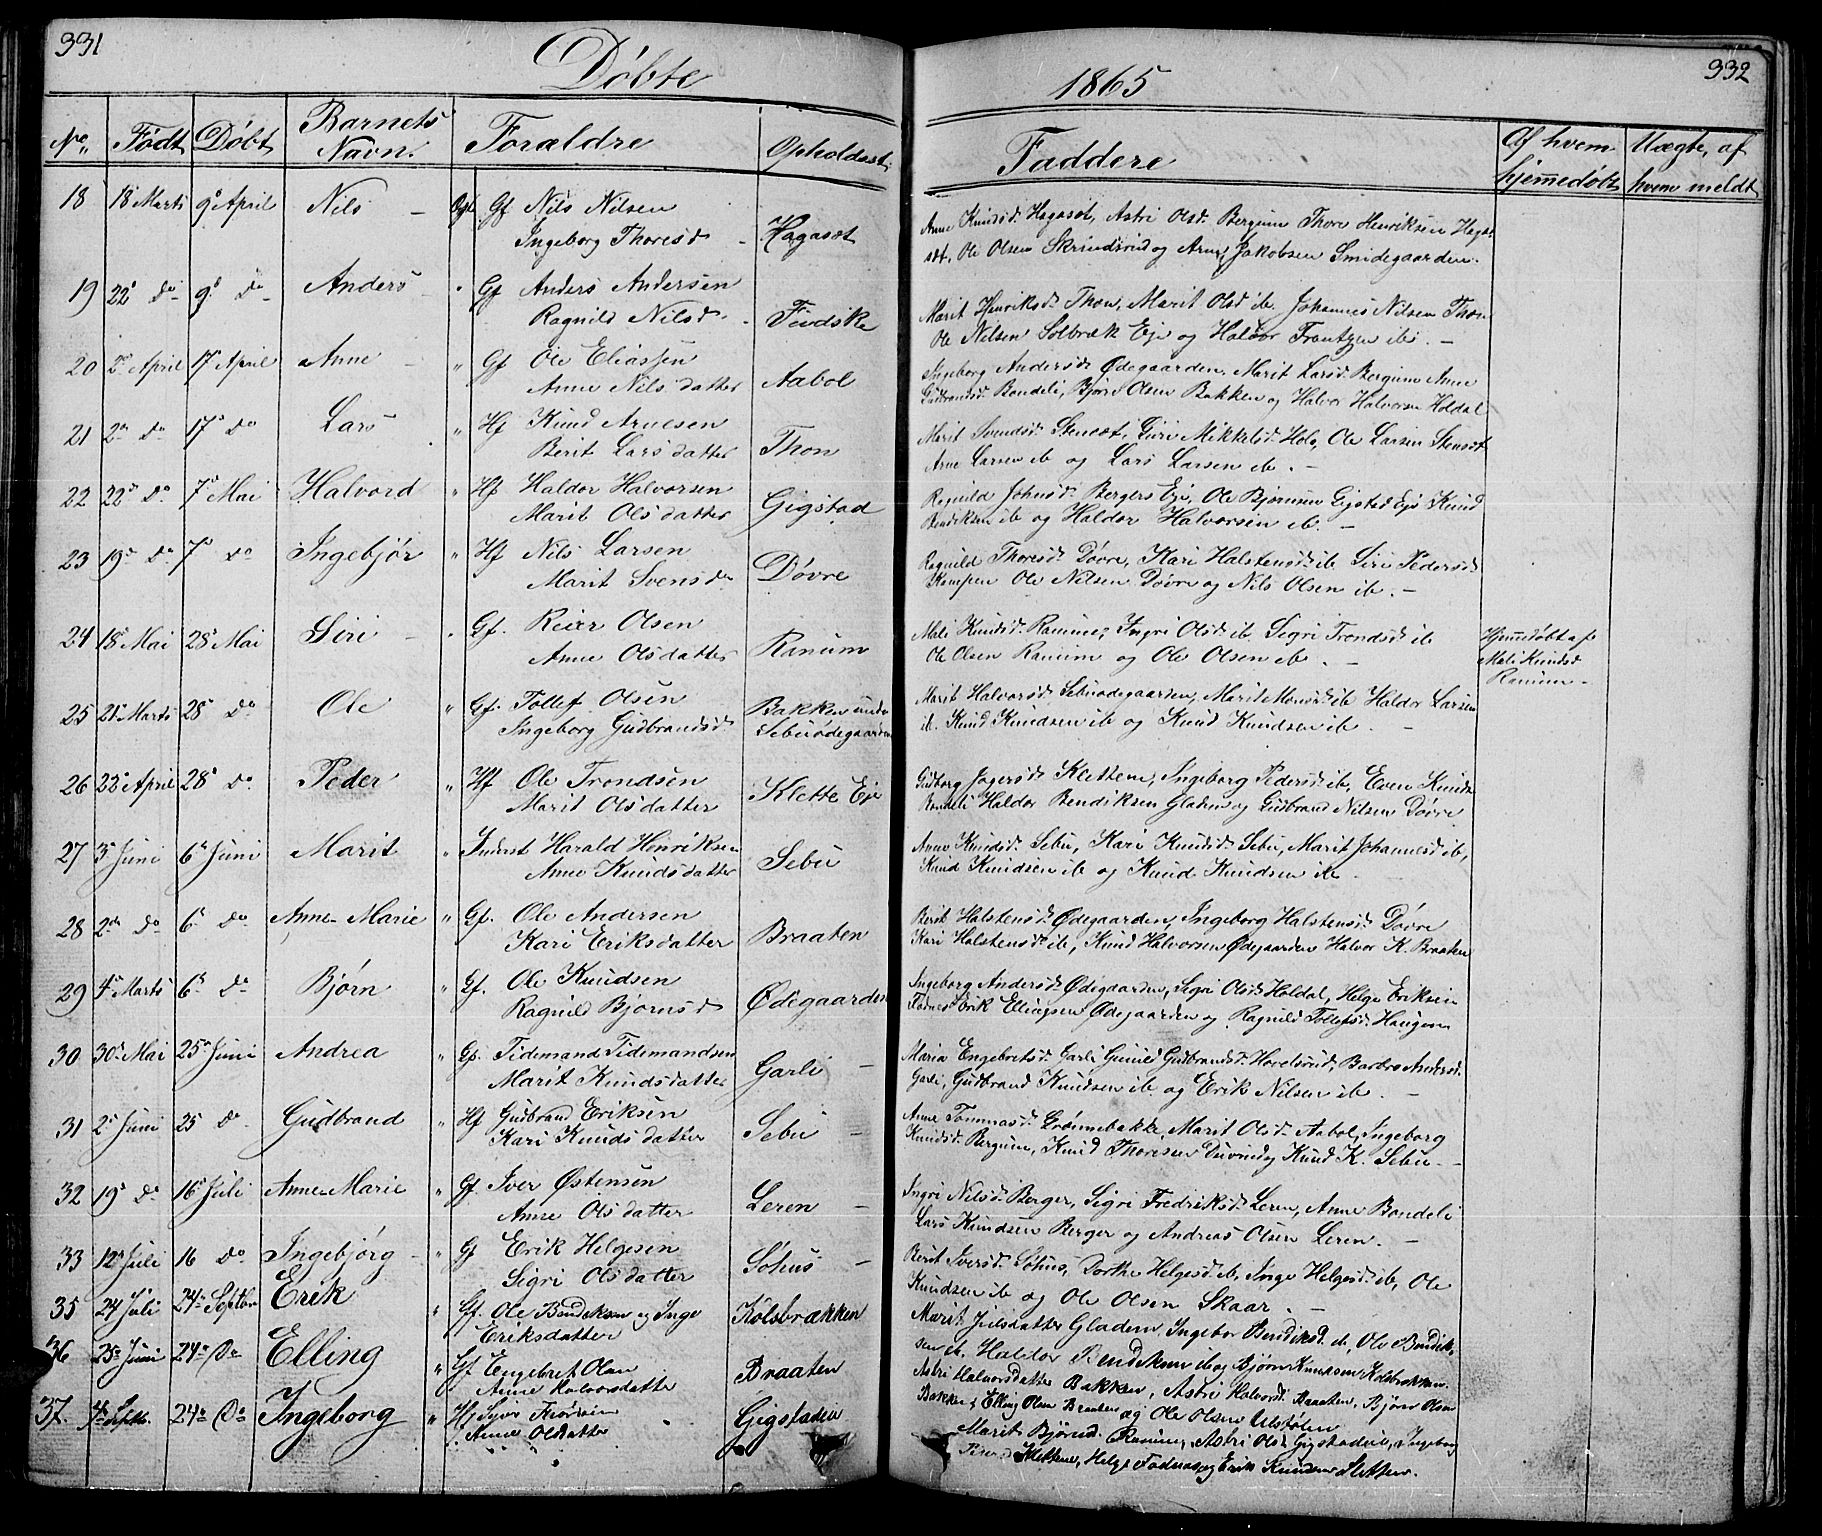 331
Døbte
1865
332
No Født Døbt Barnets Navn. Forældre Opholdsst Faddere Af hvem hjemmedøbt Uægte, af hvem meldt
18 18 Marts 9 April Nils Gf Nils Nilsen
Ingeborg Thoresd Hagaset
Anne Knudsd. Hagaset, Astri Olsd. Bergum Thore Henriksen Haga-
set, Ole Olsen Skrindsrud og Arne Jakobsen Smidegaarden.
19 22 do 9 do Anders Gf Anders Andersen
Ragnild Nilsd. Findske
Marit Henriksd. Thon, Marit Olsd ib. Johannes Nilsen Thon
Ole Nilsen Solbræk Eje og Halvor Frantzen ib.
20 2 April 17 April Anne Gf Ole Eliassen
Anne Nilsdatter Aabol
Ingeborg Andersd. Ødegaarden, Marit Larsd. Bergum Anne
Gudbrandsd. Bondeli, Bjørn Olsen Bakken og Halvor Halvorsen Holdal
21 2 do 17 do Lars Hf Knud Arnesen
Berit Larsdatter Thon
Marit Svendsd. Stenset, Guri Mikkelsd. Hole, Ole Larsen Stenset
Arne Larsen ib og Lars Larsen ib.
22 22 do 7 Mai Halvord Hf Haldor Halvorsen
Marit Olsdatter Gigstad
Ragnild Johnsd. Bergers Eje, Ole Bjørnsen Gigstad Eje Knud
Bendiksen ib og Haldor Halvorsen ib.
23 19 do 7 do Ingebjør Hf Nils Larsen
Marit Svensdr Døvre
Ragnild Thoresd. Døvre, Kari Halstensd. ib. Siri Pedersd.
Kampen Ole Nilsen Døvre og Nils Olsen ib.
24 18 Mai 28 Mai Siri Gf. Reier Olsen
Anne Olsdatter Ranum
Mali Knudsd. Ranum, Ingri Olsd. ib. Sigri Trondsd. ib
Ole Olsen Ranum og Ole Olsen ib.
Hjemmedøbt af
Mali Knudsd
Ranum
25 21 Marts 28 do Ole Gf. Tollef Olsen
Ingeborg Gudbrandsd. Bakken under
Sebuødegaarden
Marit Halvorsd. Sebuødegaarden, Marit Monsd. ib Haldor Larsen
ib. Knud Knudsen ib og Knud Knudsen ib.
26 22 April 28 do Peder Hf Ole Trondsen
Marit Olsdatter Klette Eje
Gudbjorg Jogersd. Kletten, Ingeborg Pedersd. ib, Even Knuds.
Bondeli Haldor Bendiksen Gladen og Gudbrand Nilsen Døvre
27 3 Juni 6 Juni Marit Inderst Harald Henriksen
Anne Knudsdatter Sebu
Anne Knudsd. Sebu, Kari Knudsd. Sebu, Marit Johannesd. ib,
Knud Knudsen ib og Knud Knudsen ib.
28 2 do 6 do Anne Marie Gf. Ole Andersen
Kari Eriksdatter Braaten
Berit Halstensd. Ødegaarden, Ingeborg Halstensd. Døvre
Kari Halstensd. ib, Knud Halvorsen Ødegaarden Halvor K. Braaten
29 4 Marts 6 do Bjørn Gf. Ole Knudsen
Ragnild Bjørnsd Ødegaarden
Ingeborg Andersd. Ødegaarden, Sigri Olsd. Holdal, Helge Eriksen
Fodnes Erik Ellingsen Ødegaarden og Ragnild Tollefsd. Haugen
30 30 Mai 25 Juni Andrea Gf. Tidemand Tidemandsen
Marit Knudsdatter Garli
Maria Engebretsd. Garli Gunild Gudbrandsd. Hovelsrud, Barbro Andersd.
Garli, Gudbrand Knudsen ib og Erik Nilsen ib.
31 2 Juni 25 do Gudbrand Hf Gudbrand Eriksen
Kari Knudsdatter Sebu
Anne Tommasd. Grønnebakke, Marit Olsd. Aabol, Ingeborg
Knudsd. Bergum, Knud Thoresen og Knud K. Sebu.
32 19 do 16 Juli Anne Marie Gf Iver Østensen
Anne Olsdatter Leren
Ingri Nilsd. Berger, Sigri Fredriksd. Leren, Anne Bondeli
Lars Knudsen Berger og Andreas Olsen Leren.
33 12 Juli 16 do Ingebjørg Gf Erik Helgesen
Sigri Olsdatter Søhus
Berit Iversd. Søhus, Dorthe Helgesd. ib, Inge Helgesd. ib, Ole
Knudsen ib og Ole Olsen Skaar.
35 24 Juli 24 Septbr Erik Gf. Ole Bendiksen og Inge
Eriksdatter Kolsbrækken
Marit Juelsdatter Gladen Ingebor Bendiksd. ib, Ole Bendik-
sen ib. Haldor Bendiksen ib og Bjørn Knudsen Kolsbrækken.
36 25 Juni 24 Do Elling Gf Engebret Olsen
Anne Halvorsdatter Braaten
Astri Halvorsdatter Bakken, Astri Halvorsd. Braaten, Bjørn Olsen
Bakken, Elling Olsen Braaten og Ole Olsen Ulstølen
37 4 Septb. 24 Do Ingeborg Hf
Anne Olsdatter Gigstaden
Marit Bjørnsd. Ranum, Astri Olsd. Gigstadeie, Ingeborg
Kletten, Helge Fodnes og Erik Knudsen Sletten.